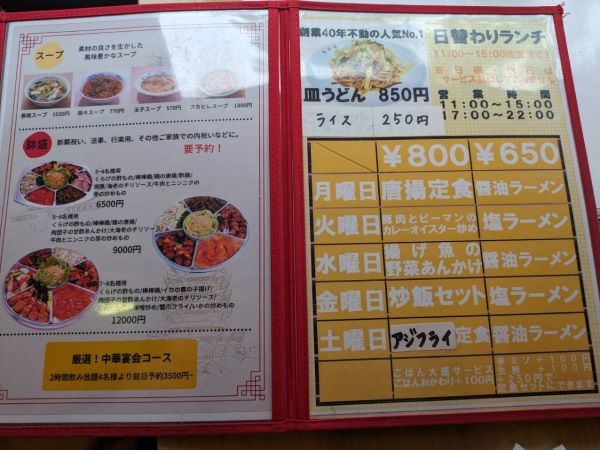 スープ
素材の良さを生かした
風味豊かなスープ
春雨スープ 1030円
770円
玉子スープ 570円
フカヒレスープ 1800円
鉢盛
新築祝い、法事、行楽用、その他ご家族での内祝いなどに。
要予約!
3~4名様用
くらげの酢もの/棒棒鶏/鶏の唐揚/酢豚/
焼豚/海老のチリソース/牛肉とニンニクの
芽の炒めもの
6500円
5~6名様用
くらげの酢もの/棒棒鶏/鶏の唐揚/
肉団子の甘酢あんかけ/大海老のチリソース/
牛肉とニンニクの芽の炒めもの
9000円
7~8名様用
くらげの酢もの/棒棒鶏/イカの鹿の子揚げ/
肉団子の甘酢あんかけ/大海老のチリソース/
味噌炒め/蟹爪フライ/いかの炒めもの
12000円
厳選!中華宴会コース
2時間飲み放題4名様より前日予約3500円~
創業40年不動の人気No.1
皿うどん 850円
ライス 250円
日替わりランチ
11:00~15:00
営業時間
11:00~15:00
17:00~22:00
¥800 ¥650
月曜日 唐揚定食 醤油ラーメン
火曜日 豚肉とピーマンの
カレーオイスター炒め 塩ラーメン
水曜日 揚げ魚の
野菜あんかけ 醤油ラーメン
金曜日 炒飯セット 塩ラーメン
土曜日 アジフライ定食 醤油ラーメン
ごはん大盛サービス
ごはんおかわり+100円
+100円
+100円
+250円で
定食セットにできます